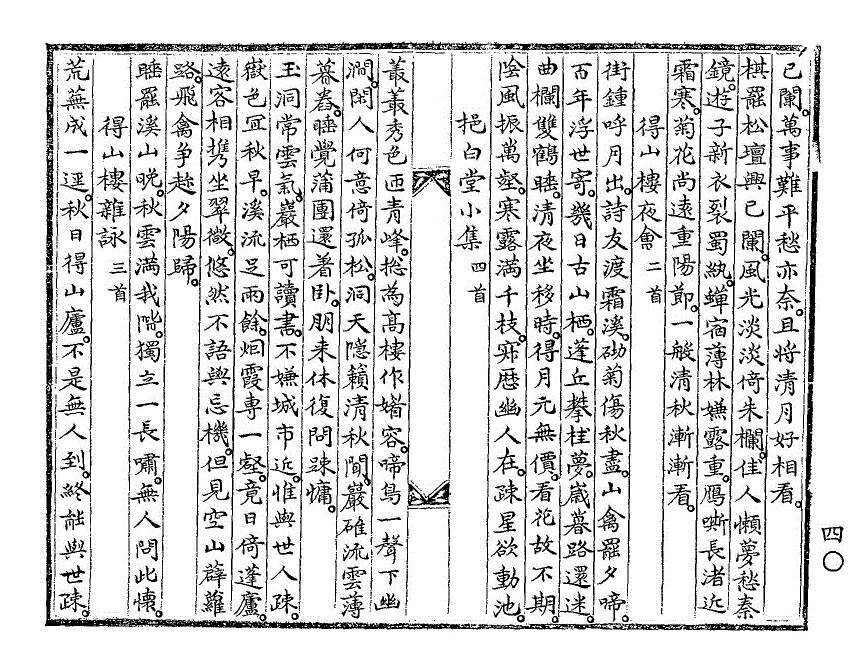 已闌。萬事難平愁亦奈。且將清月好相看。
棋罷松壇興已闌。風光淡淡倚朱欄。佳人懶夢愁秦
鏡。遊子新衣裂蜀紈。蟬宿薄林嫌露重。鴈嘶長渚近
霜寒。菊花尚遠重陽節。一般清秋漸漸看。
得山樓夜會 二首
街鍾呼月出。詩友渡霜溪。砌菊傷秋盡。山禽罷夕啼。
百年浮世寄。幾日古山栖。蓬丘攀桂夢。歲暮路還迷。
曲欄雙鶴睡。清夜坐移時。得月元無價。看花故不期。
陰風振萬壑。寒露滿千枝。寂歷幽人在。疎星欲動池。
挹白堂小集 四首
叢叢秀色匝青峰。捴為高樓作容。啼鳥一聲下幽
澗。閑人何意倚孤松。洞天隱籟清秋。巖碓流雲薄
暮舂。睡覺蒲團還着卧。朋来休復問疎慵。
玉洞常雲氣。巖栖可讀書。不嫌城市近。惟與世人疎。
嶽色宜秋早。溪流足雨餘。烟霞專一壑。竟日倚蓬廬。
遠容相携坐翠微。悠然不語與忘機。但見空山薜蘿
路。飛禽争趁夕陽歸。
睡罷溪山晚。秋雲滿我階。獨立一長嘯。無人問此懷。
得山樓雜詠 三首
荒蕪成一逕。秋日得山廬。不是無人到。終能與世疎。
四〇